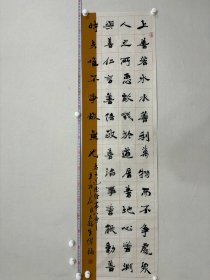 上善若水水善利萬物而不爭處衆
人之所惡故幾於道居善地心善淵
與善仁言善信政善治事善能動善
時夫唯不爭故無尤